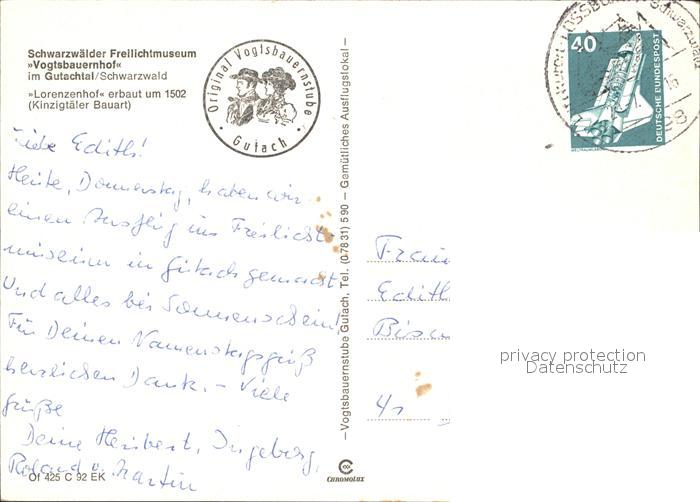 Schwarzwälder Freilichtmuseum
»Vogtsbauernhof«
im Gutachtal/Schwarzwald
»Lorenzenhof« erbaut um 1502
(Kinzigtäler Bauart)
Original Vogtsbauernstube
Gutach
40
DEUTSCHE BUNDESPOST
Liebe Edith!
Heute, Donnerstag, haben wir
einen Ausflug ins Freilicht-
museum in Gutach gemacht
Und alles bei Sonnenschein!
Für Deinen Namenstagsgruß
herzlichen Dank. – Viele
Grüße
Deine Heribert, Ingeborg,
Roland u. Martin
Of 425 C 92 EK
—Vogtsbauernstube Gutach, Tel. (07831) 590 – Gemütliches Ausflugslokal—
CHROMOLUX
Frau
Edith
41
privacy protection
Datenschutz